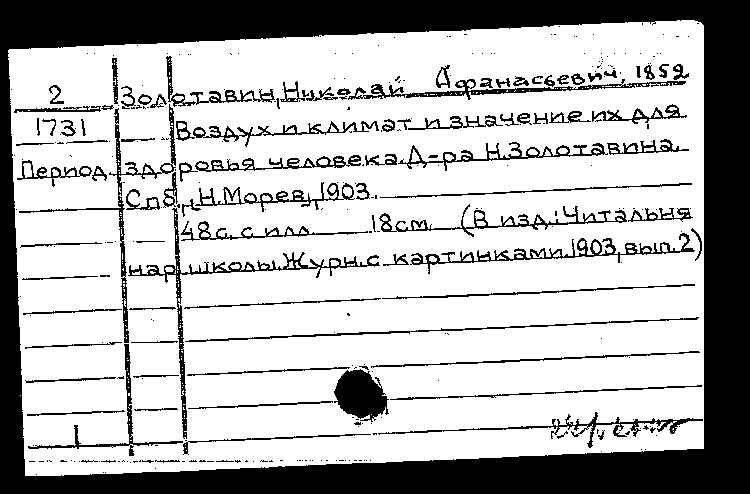 2 Золотавин, Николай Афанасьевич, 1859
1731 Воздух и климат и значение их для
Период. здоровья человека. Д-ра Н. Золотавина.
Спб., Н. Морев, 1903.
48с. с илл. 18см. (В изд.: Читальня
нар. школы. Журн. с картинками. 1903, вып. 2)
1